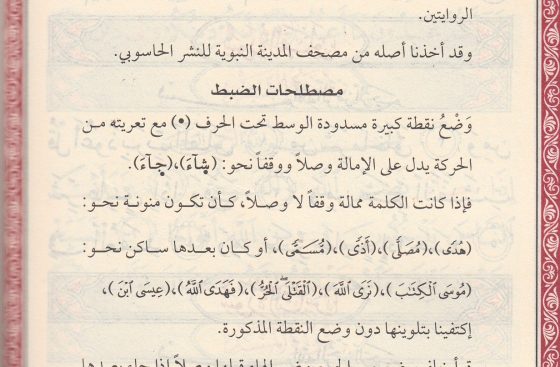 الروايتين.
وقد أخذنا أصله من مصحف المدينة النبوية للنشر الحاسوبي.
مصطلحات الضبط
وَضْعُ نقطة كبيرة مسدودة الوسط تحت الحرف (•) مع تعريته من
الحركة يدل على الإمالة وصلاً ووقفاً نحو: (شآءَ)،(جآءَ).
فإذا كانت الكلمة ممالة وقفاً لا وصلاً، كأن تكون منونة نحو:
(هُدًى)،(مُصَلًّى)،(أَذًى)،(مُسَمًّى)، أو كان بعدها ساكن نحو:
(مُوسَى ٱلْكِتَٰبَ)،(نَرَى ٱللَّهَ)،(ٱلْقَتْلَى ٱلْحُرُّ)،(فَهَدَى ٱللَّهُ)،(عِيسَى ٱبْنَ)،
إكتفينا بتلوينها دون وضع النقطة المذكورة.